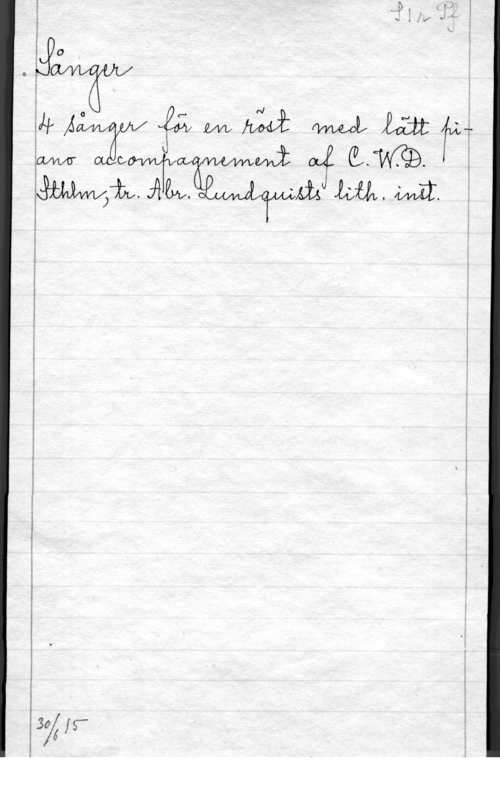 S 1 r Pf
Sånger
4 sånger för en röst med lätt pi-
ano accompagnement af C.W.D.
Sthlm, tr. Abr. Lundquists lith. inst.
30/6 15